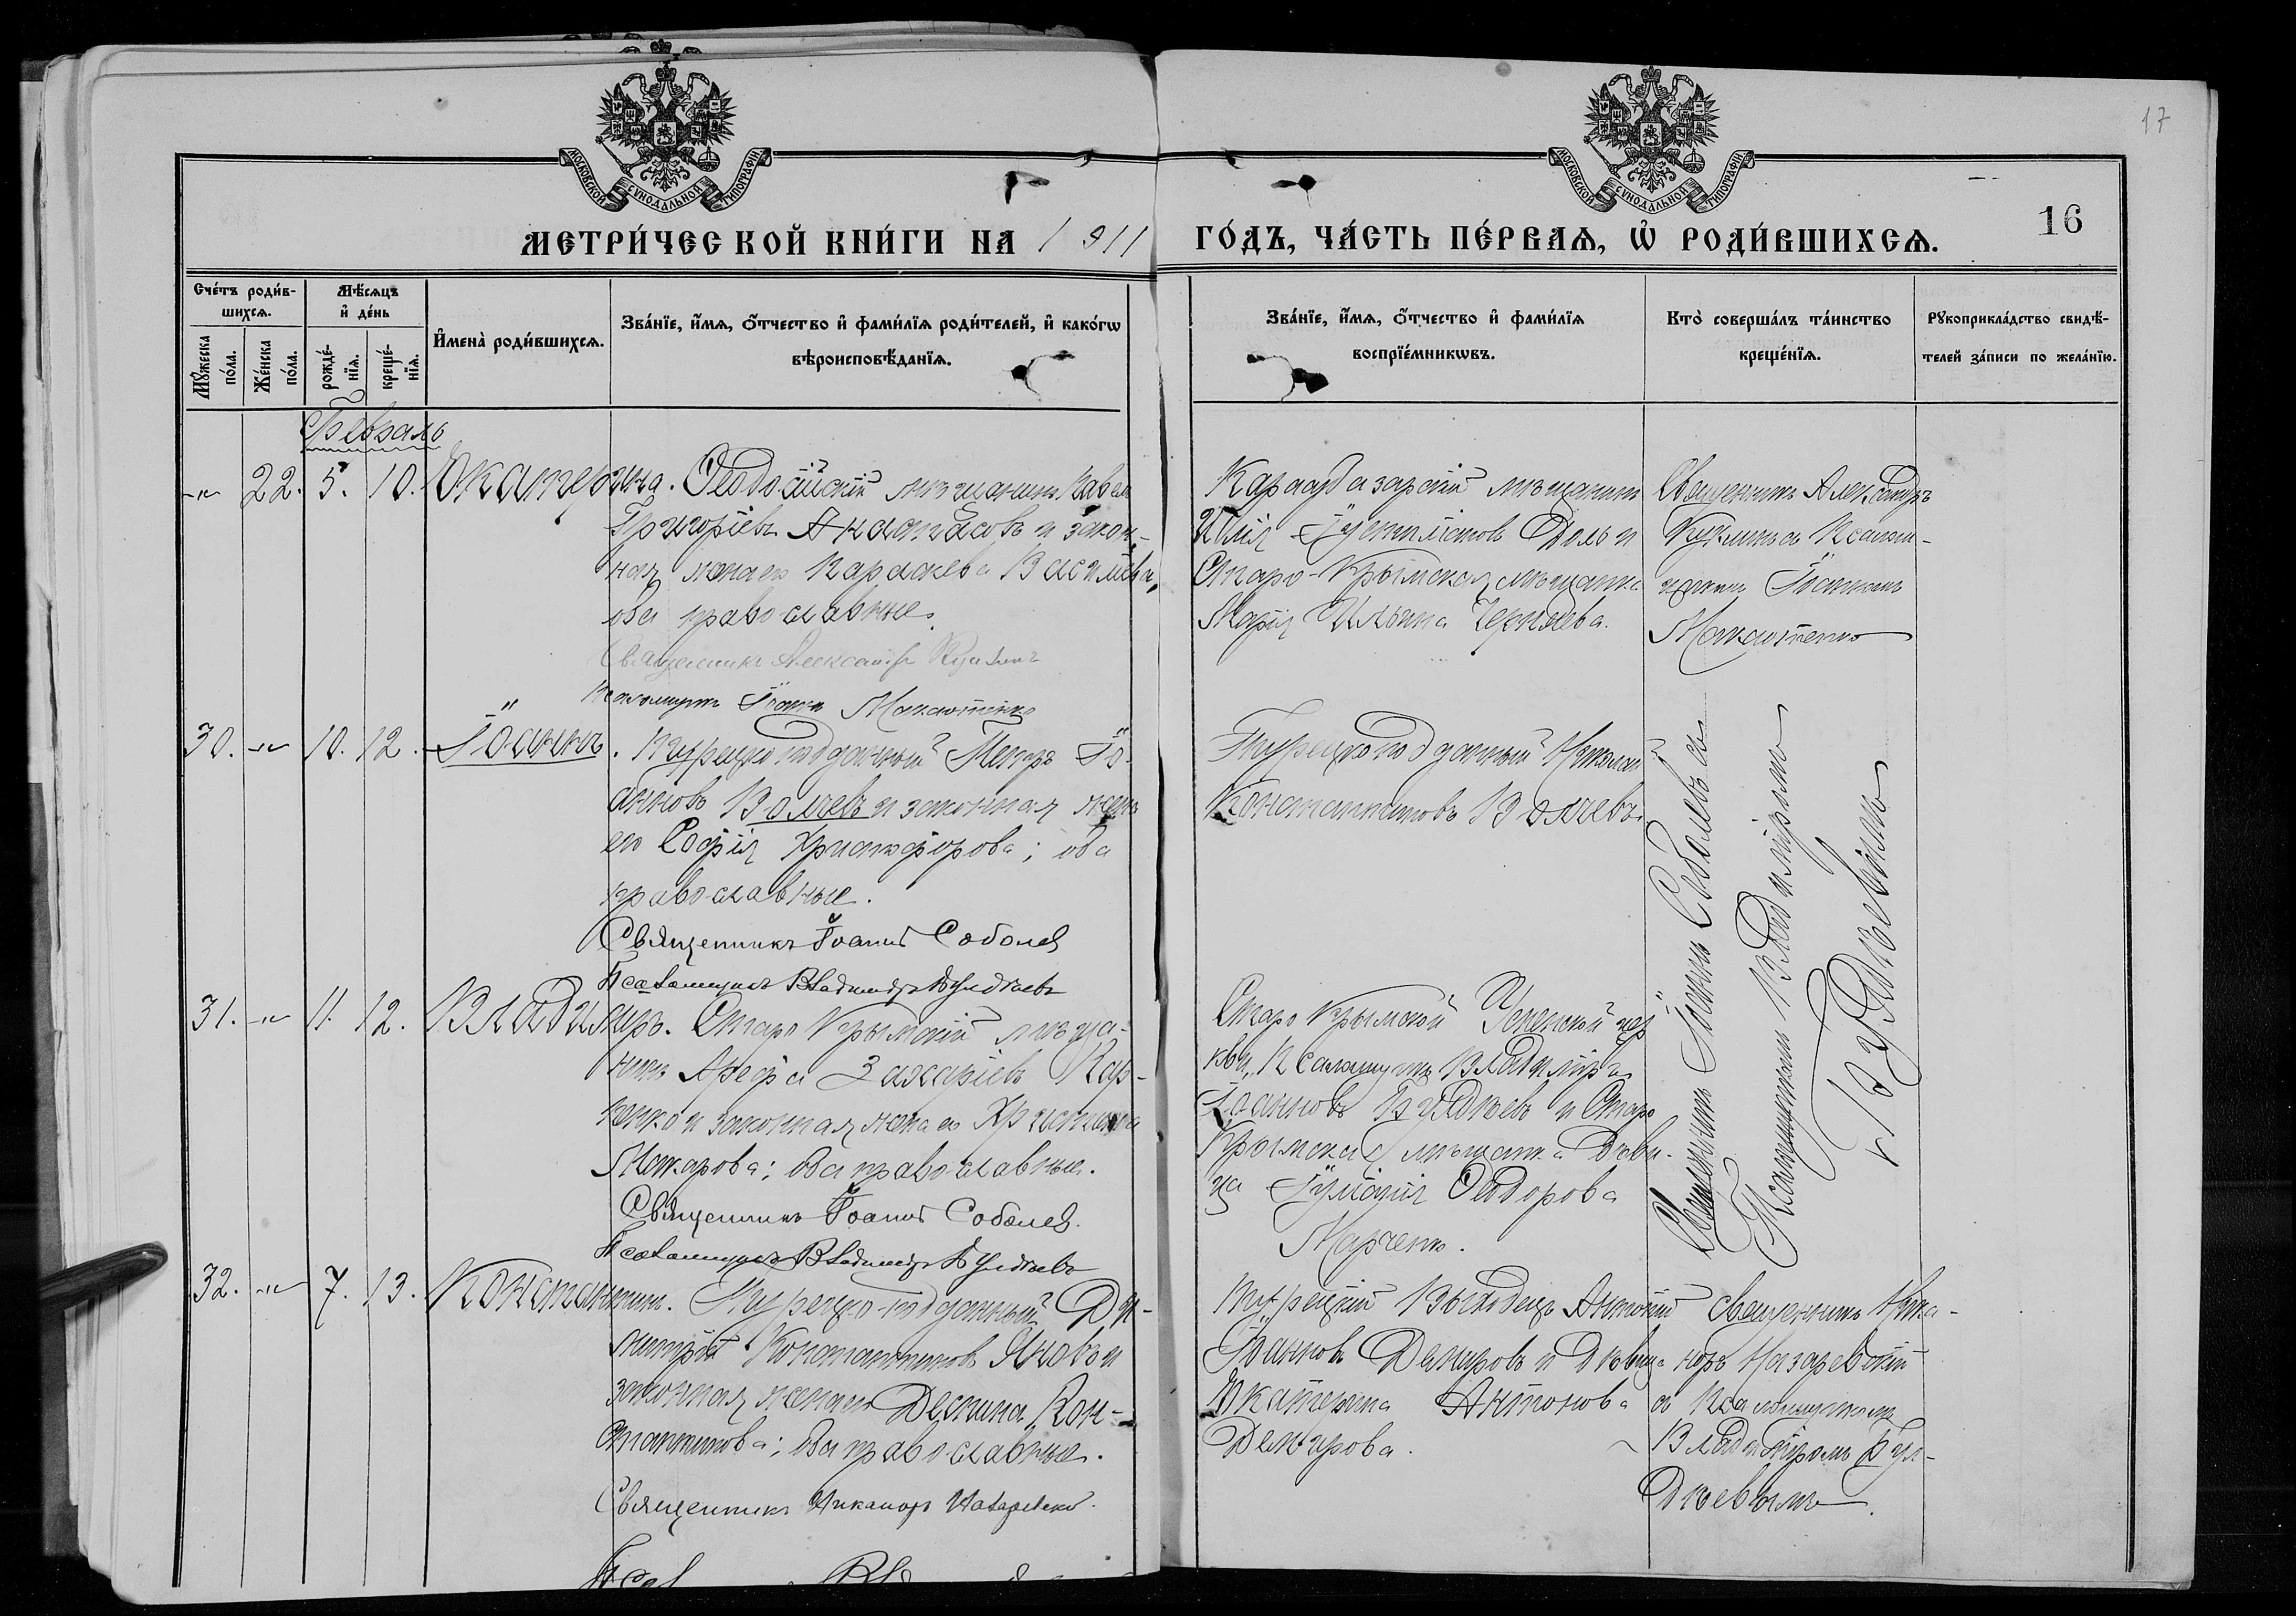 17
МОСКОВСКОЙ СѴНОДАЛЬНОЙ ТИПОГРАФІИ
МОСКОВСКОЙ СѴНОДАЛЬНОЙ ТИПОГРАФІИ
16
МЕТРИ́ЧЕСКОЙ КНИ́ГИ НА 1911
ГО́ДЪ, ЧА́СТЬ ПЕ́РВАѦ, Ѡ҆ РОДИ́ВШИХСѦ.
Сче́тъ роди́в-
шихсѧ.
Мꙋ́жеска по́ла.
Же́нска по́ла.
Мѣ́сѧцъ
и҆ де́нь
рожде́-нїѧ.
креще́-нїѧ.
И҆мена̀ роди́вшихсѧ.
Зва́нїе, и҆́мѧ, ѻ҆́тчество и҆ фами́лїѧ роди́телей, и҆ како́гѡ
вѣроисповѣ́данїѧ.
Зва́нїе, и҆́мѧ, ѻ҆́тчество и҆ фами́лїѧ
воспрїе́мникѡвъ.
Кто̀ соверша́лъ та́инство
креще́нїѧ.
Рꙋкоприкла́дство свидѣ́-
телей за́писи по жела́нїю.
Февраль
-"- 22. 5. 10. Екатерина.
Ѳеодосійскій мѣщанинъ Павелъ
Григоріевъ Анастасовъ и закон-
ная жена его Параскева Васильева,
оба православные.
Священникъ Александръ
Псаломщикъ Іоаннъ Макотенко
Карасубазарскій мѣщанинъ
Илія
Старо-Крымская мѣщанка
Марія Ильина Черняева.
Священникъ Александръ
съ Псалом-
щикомъ Іоанномъ
30. -"- 10. 12. Іоаннъ.
Турецко подданный Петръ Іо-
анновъ Волчевъ и законная жена
его Софія Христофорова; оба
православные.
Священникъ Іоаннъ Соболев
Псаломщикъ Владимиръ Булдѣевъ
Турецко подданный Николай
Константиновъ Волчевъ.
Священникъ Іоаннъ Соболевъ съ
Псаломщикомъ Владиміромъ
Булдѣевымъ
31. -"- 11. 12. Владиміръ.
Старо Крымскій мѣща-
нинъ Арефа Захаріевъ Кар-
пенко и законная жена его Христина
Макарова; оба православные.
Священникъ Іоаннъ Соболев.
Псаломщикъ Владимиръ Булдѣевъ
Старо Крымской Успенской цер
кви, Псаломщикъ Владиміръ
Іоанновъ Булдѣевъ и Старо
Крымская мѣщанка Дѣви-
ца Іулианія Ѳеодорова
Марченко.
32. -"- 7. 13. Константинъ.
Турецко-подданный Ди-
митрій Константиновъ Яновъ и
законная жена его Деспина Кон-
стантинова; оба православные.
Священникъ Никаноръ Назаревскій.
Турецкій Выходецъ Антоній
Іоанновъ Демировъ и Дѣвица
Екатерина Антонова
Демирова.
Священникъ Ника-
норъ Назаревскій
съ Псаломщикомъ
Владиміромъ Бул-
дѣевымъ.